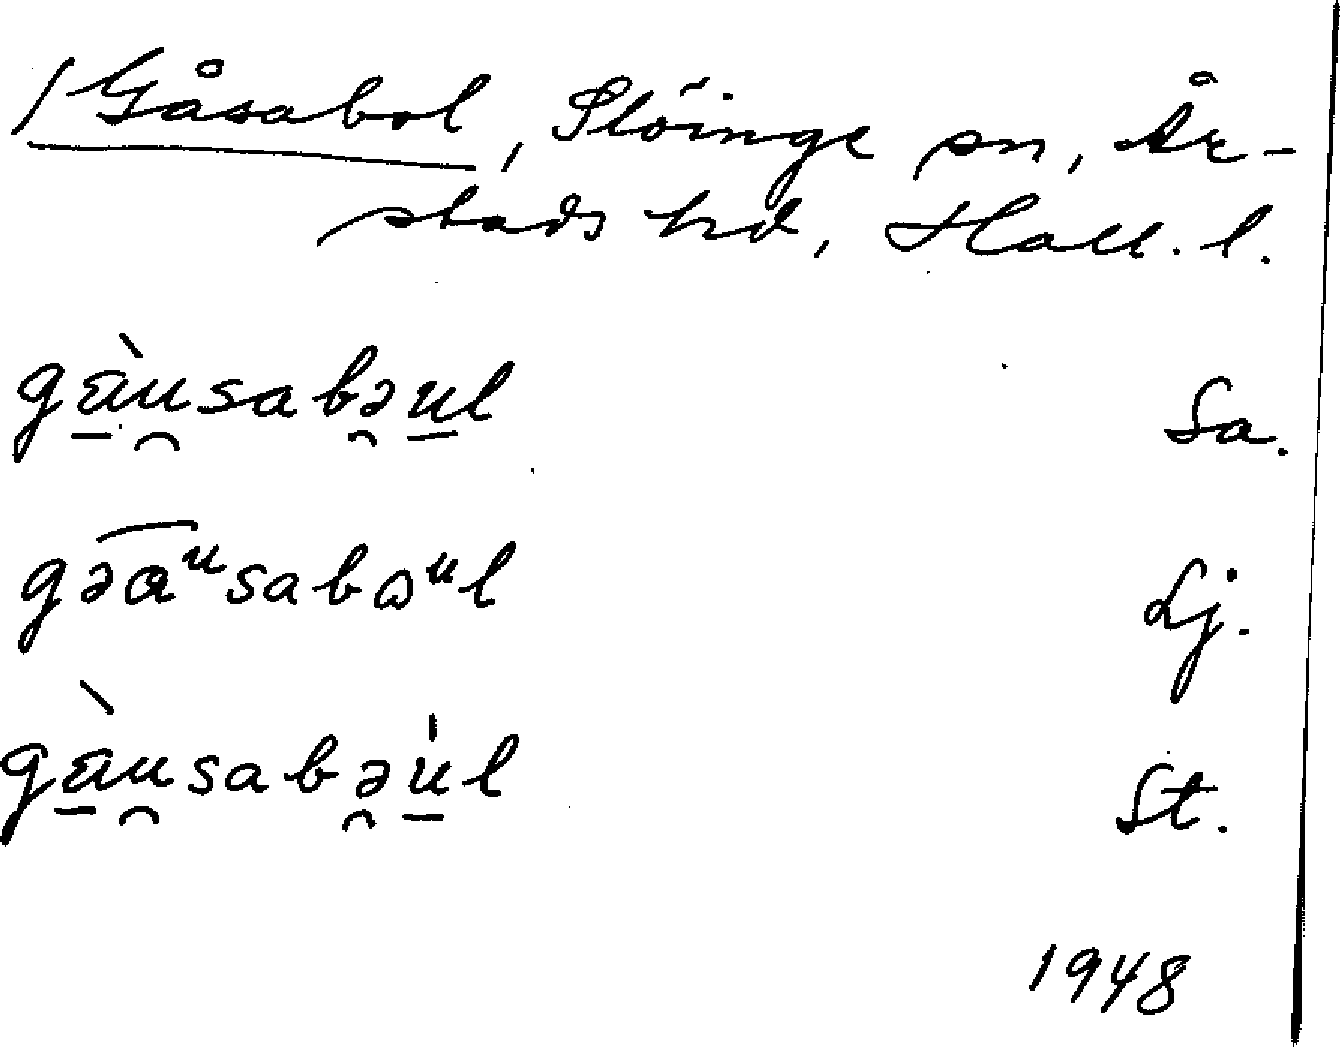 /Gåsabol, Slöinge sn, År-
stads hd, Hall. l.
gàu̯sabə̯ul Sa.
gəāᵘsabɷᵘl Lj.
gàu̯sabə̯u̍l St.
1948